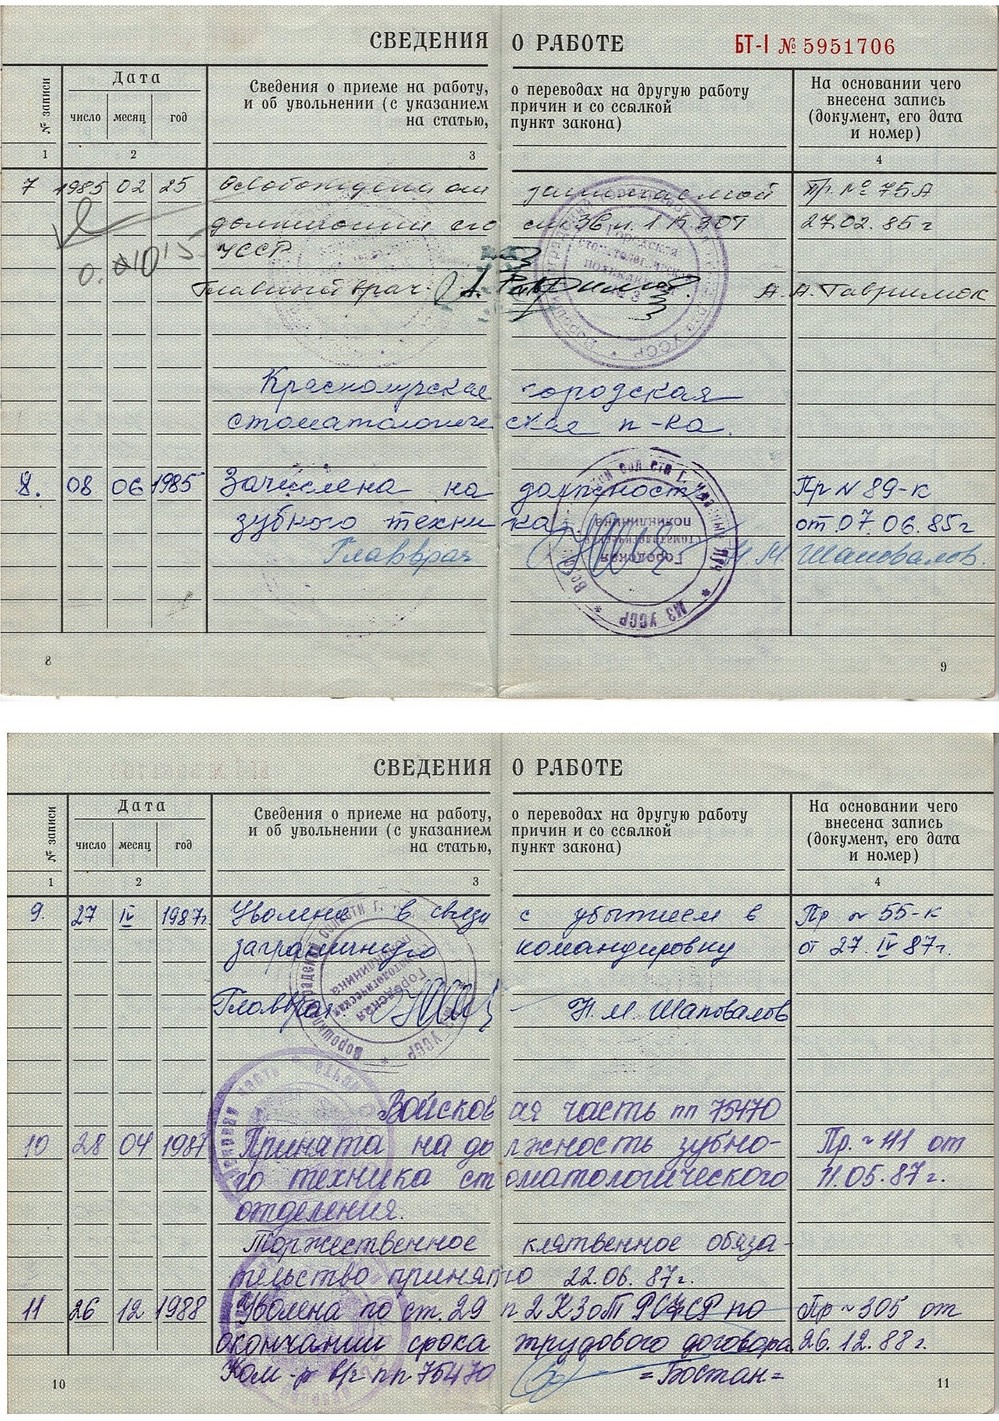 СВЕДЕНИЯ О РАБОТЕ
БТ-I № 5951706
№ записи
Дата
число месяц год
Сведения о приеме на работу, о переводах на другую работу
и об увольнении (с указанием причин и со ссылкой
на статью, пункт закона)
На основании чего
внесена запись
(документ, его дата
и номер)
1 2 3 4
7 1985 02 25 Освобождена от занимаемой Пр. № 75А
должности ст 38 п. 1 КЗОТ 27.02.85г
УССР
Главный врач. А. А. Гаврилюк
Краснолучская городская
стоматологическая п-ка.
8. 08 06 1985 Зачислена на должность Пр № 89-к
зубного техника. от 07.06.85г
Главврач Н.М. Шаповалов.
Городская
стоматологическая
поликлиника
МЗ УССР
8 9
СВЕДЕНИЯ О РАБОТЕ
№ записи
Дата
число месяц год
Сведения о приеме на работу, о переводах на другую работу
и об увольнении (с указанием причин и со ссылкой
на статью, пункт закона)
На основании чего
внесена запись
(документ, его дата
и номер)
1 2 3 4
9. 27 IV 1987г. Уволена в связи с убытием в Пр № 55-к
заграничную командировку от 27 IV 87г.
Главврач Н.М. Шаповалов
Войсковая часть пп 75470
10 28 04 1987 Принята на должность зубно- Пр. № 111 от
го техника стоматологического 11.05.87г.
отделения.
Торжественное клятвенное обяза-
тельство принято 22.06.87г.
11 26 12 1988 Уволена по ст. 29 п 2 КЗоТ РСФСР по Пр № 305 от
окончании срока трудового договора 26.12.88г.
Ком-р в/ч пп 75470 =Бостан=
10 11